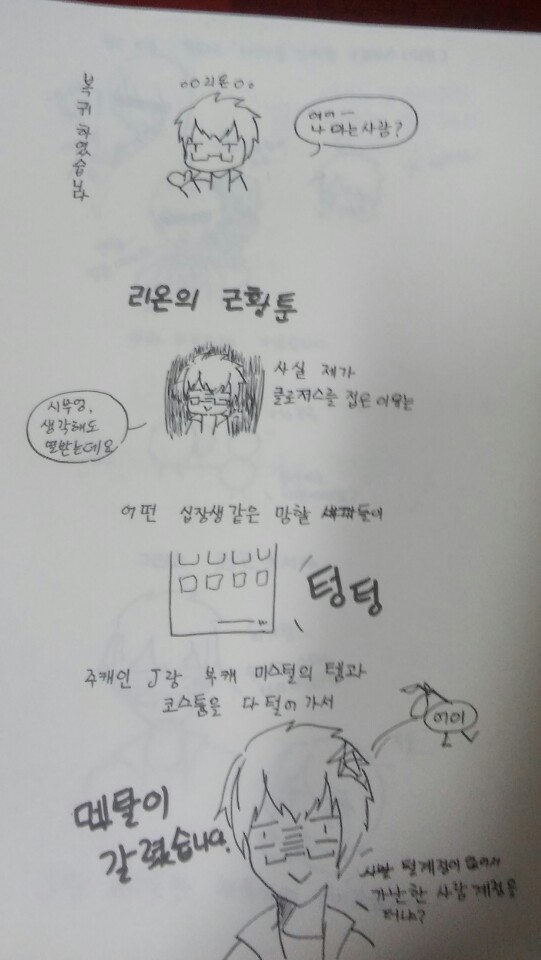 복귀하였습니다
○○리온○○
여어ー
나 아는사람?
리온의 근황툰
사실 제가
클로저스를 접은 이유는
시부엉,
생각해도
열받는데요
어떤 십장생같은 망할 새끼들이
텅텅
주캐인 J랑 부캐 미스틸의 템과
코스튬을 다 털어 가서
어이
멘탈이
갈렸습니다.
털계정이 없어서
가난한 사람 계정을
터냐?